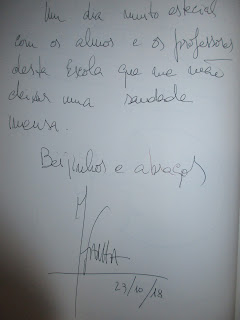 Um dia muito especial
com os alunos e os professores
desta Escola que me vão
deixar uma saudade
imensa.
Beijinhos e abraços
23/10/18